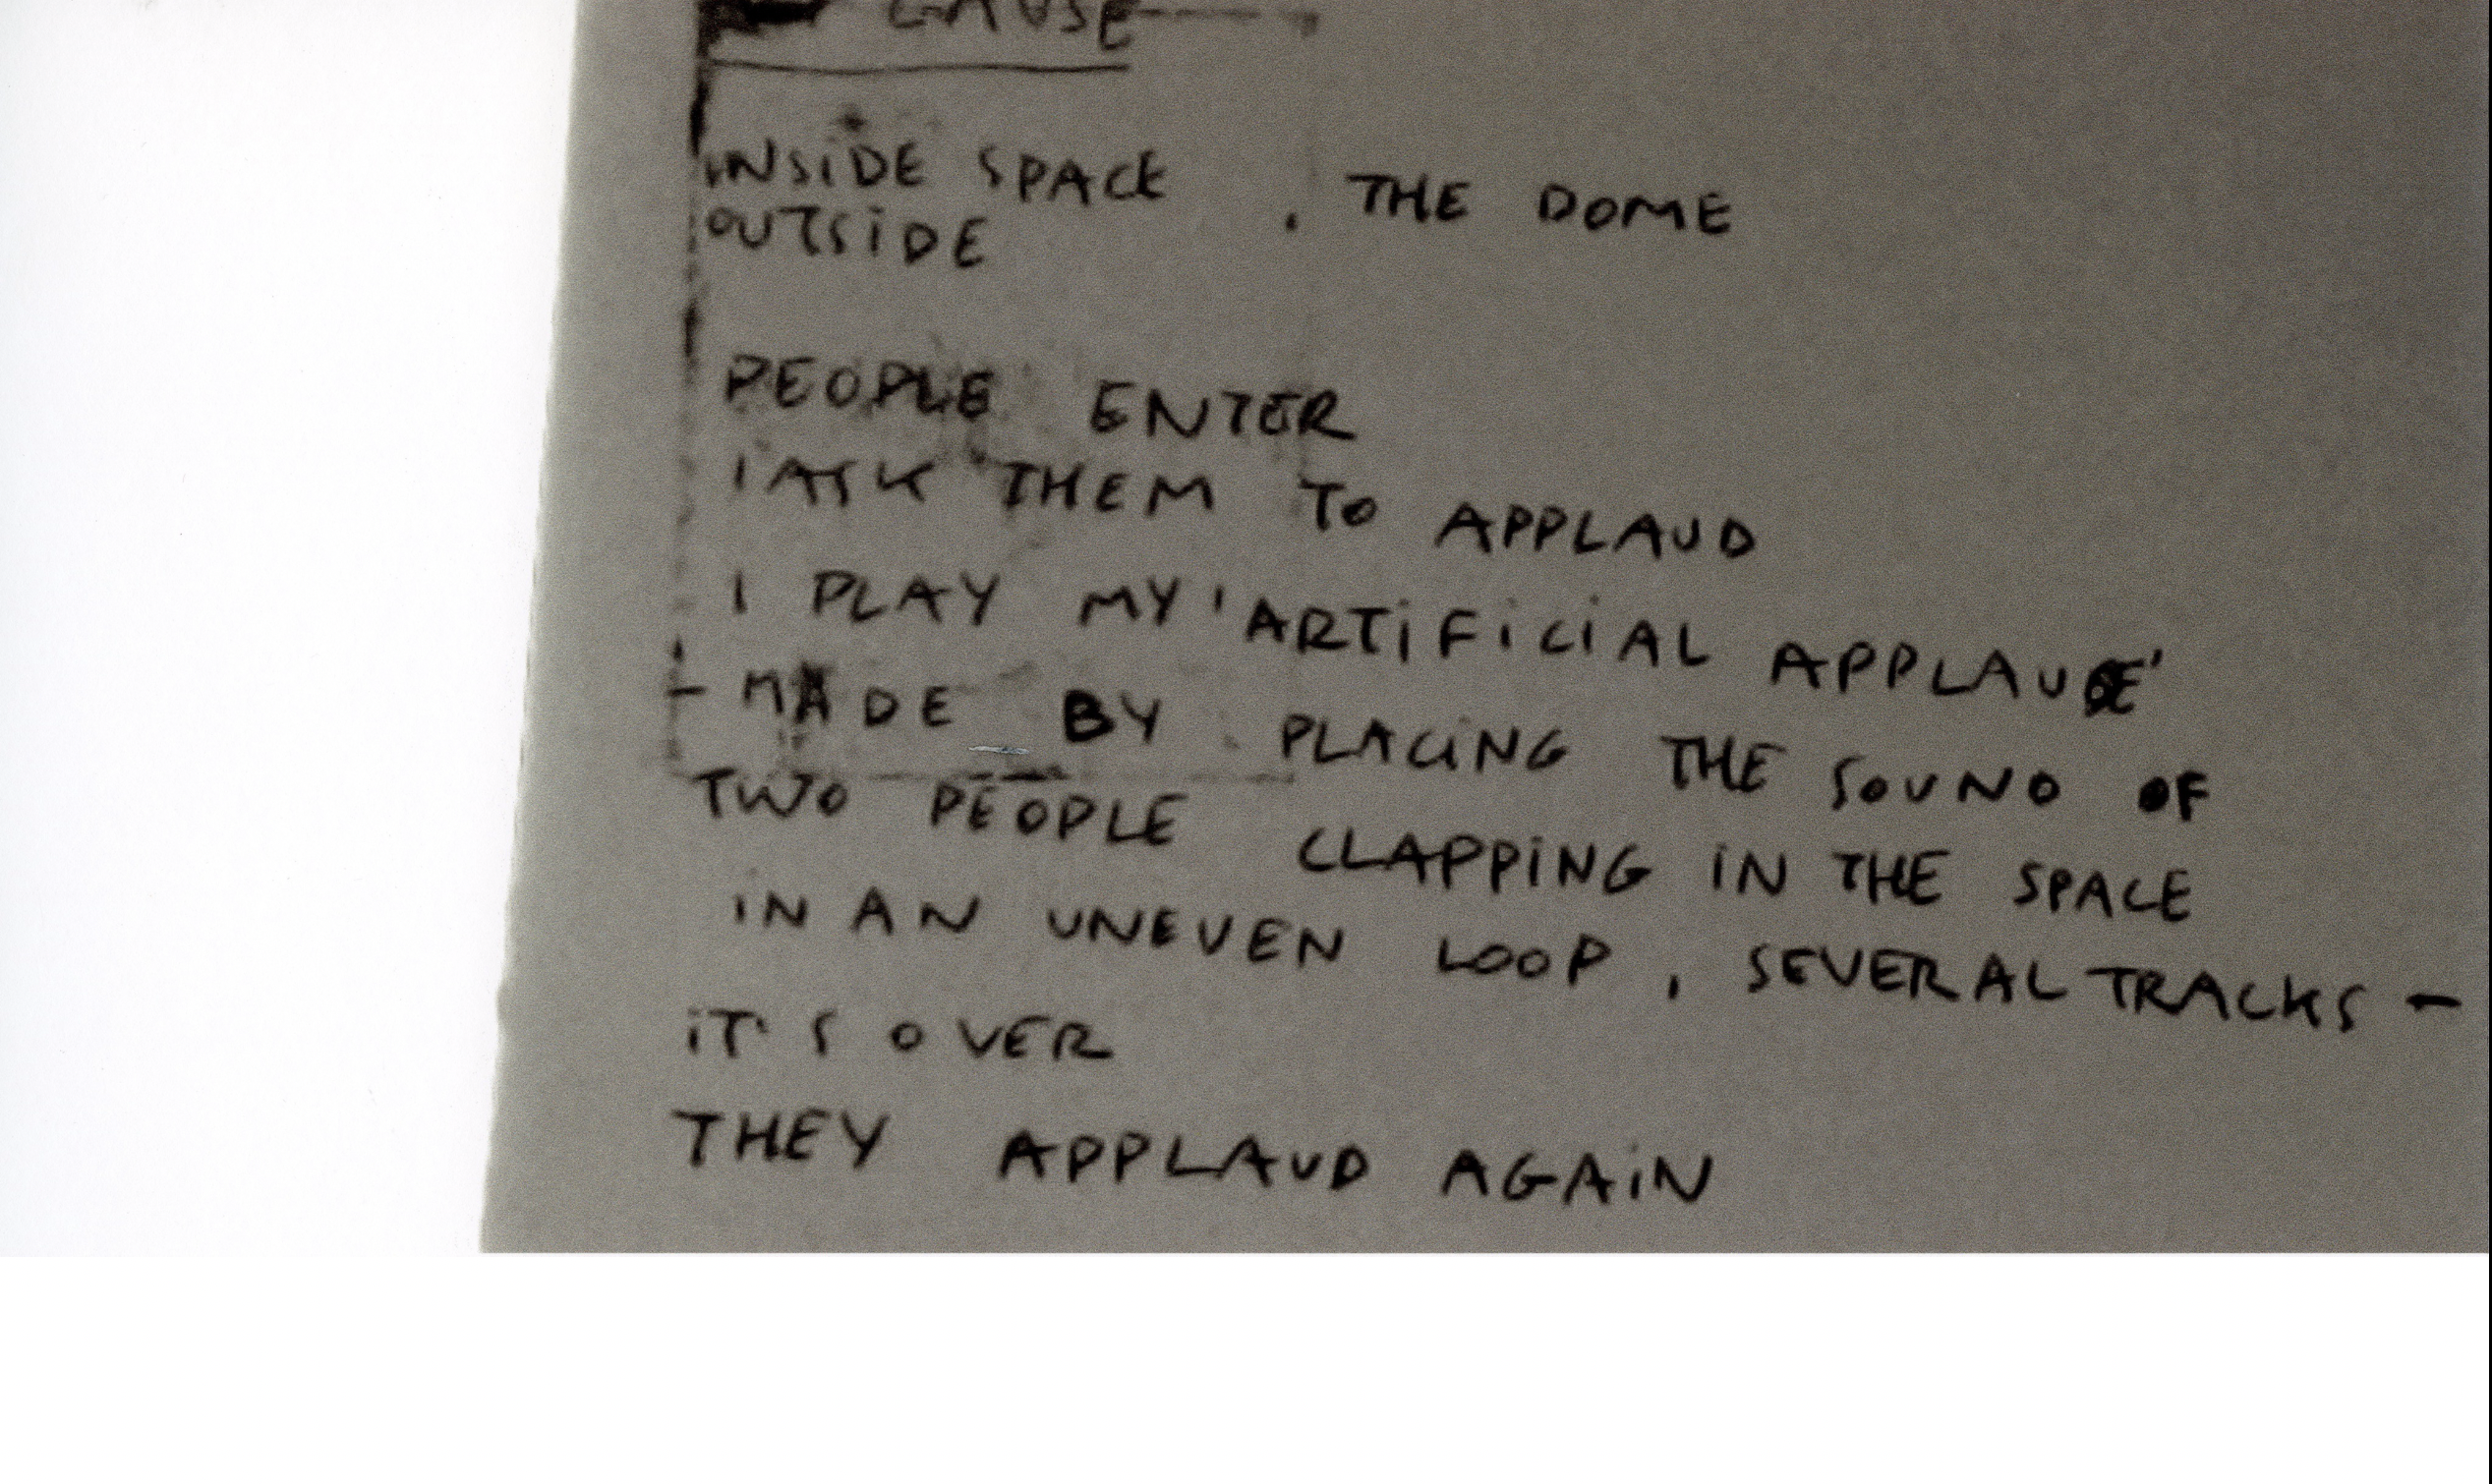 INSIDE SPACE . THE DOME
OUTSIDE
PEOPLE ENTER
I ASK THEM TO APPLAUD
I PLAY MY 'ARTIFICIAL APPLAUSE'
- MADE BY PLACING THE SOUND OF
TWO PEOPLE CLAPPING IN THE SPACE
IN AN UNEVEN LOOP, SEVERAL TRACKS -
IT'S OVER
THEY APPLAUD AGAIN